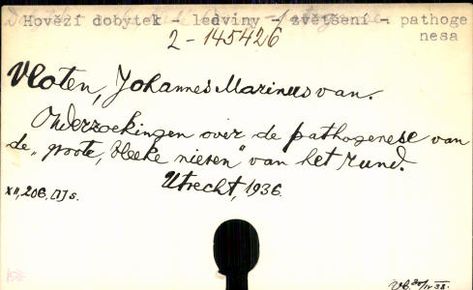 Hovězí dobytek - ledviny - zvětšení - pathoge
nesa
2-145426
Vloten, Johannes Marinus van.
Onderzoekingen over de pathogenese van
de „groote, bleeke nieren" van het rund.
Utrecht, 1936.
XII, 206, [7] s.